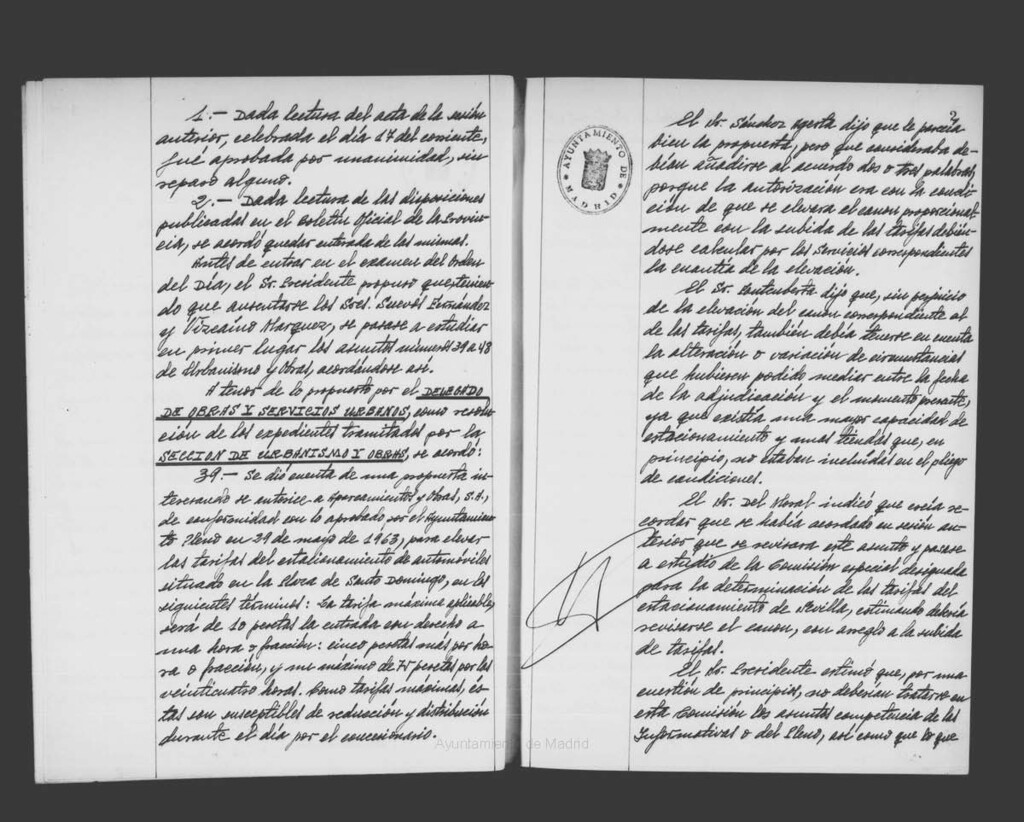 1.- Dada lectura del acta de la sesión
anterior, celebrada el día 17 del corriente,
fué aprobada por unanimidad, sin
reparo alguno.
2.- Dada lectura de las disposiciones
publicadas en el Boletín Oficial de la Provin-
cia, se acordó quedar enterada de las mismas.
Antes de entrar en el examen del Orden
del Día, el Sr. Presidente propuso que, tenien-
do que ausentarse los Sres. Suevos Fernández
y Vizcaino Marquez, se pasase a estudiar
en primer lugar los asuntos números 39 a 48
de Urbanismo y Obras, acordándose así.
A tenor de lo propuesto por el DELEGADO
DE OBRAS Y SERVICIOS URBANOS, como resolu-
ción de los expedientes tramitados por la
SECCION DE URBANISMO Y OBRAS, se acordó:
39.- Se dió cuenta de una propuesta in-
teresando se autorice a Aparcamientos y Obras, S.A.,
de conformidad con lo aprobado por el Ayuntamien-
to Pleno en 29 de mayo de 1963, para elevar
las tarifas del estacionamiento de automóviles
situado en la Plaza de Santo Domingo, en los
siguientes términos: La tarifa máxima aplicable,
será de 10 pesetas la entrada con derecho a
una hora o fracción: cinco pesetas más por ho-
ra o fracción, y un máximo de 75 pesetas por las
veinticuatro horas. Como tarifas máximas, és-
tas son susceptibles de reducción y distribución
durante el día por el concesionario.
AYUNTAMIENTO DE MADRID
2
El Sr. Sánchez Agesta dijo que le parecía
bien la propuesta, pero que consideraba de-
bían añadirse al acuerdo dos o tres palabras,
porque la autorización era con la condi-
ción de que se elevara el canon proporcional-
mente con la subida de las tarifas debién-
dose calcular por los Servicios correspondientes
la cuantía de la elevación.
El Sr. dijo que, sin perjuicio
de la elevación del canon correspondiente al
de las tarifas, también debía tenerse en cuenta
la alteración o variación de circunstancias
que hubiesen podido mediar entre la fecha
de la adjudicación y el momento presente,
ya que existía una mayor capacidad de
estacionamiento y unas tiendas que, en
principio, no estaban incluidas en el pliego
de condiciones.
El Sr. Del Moral indicó que creía re-
cordar que se había acordado en sesión an-
terior que se revisara este asunto y pasase
a estudio de la Comisión especial designada
para la determinación de las tarifas del
estacionamiento de Sevilla, estimando debería
revisarse el canon, con arreglo a la subida
de tarifas.
El Sr. Presidente estimó que, por una
cuestión de principios, no deberían tratarse en
esta Comisión los asuntos competencia de las
Informativas o del Pleno, así como que lo que
Ayuntamiento de Madrid